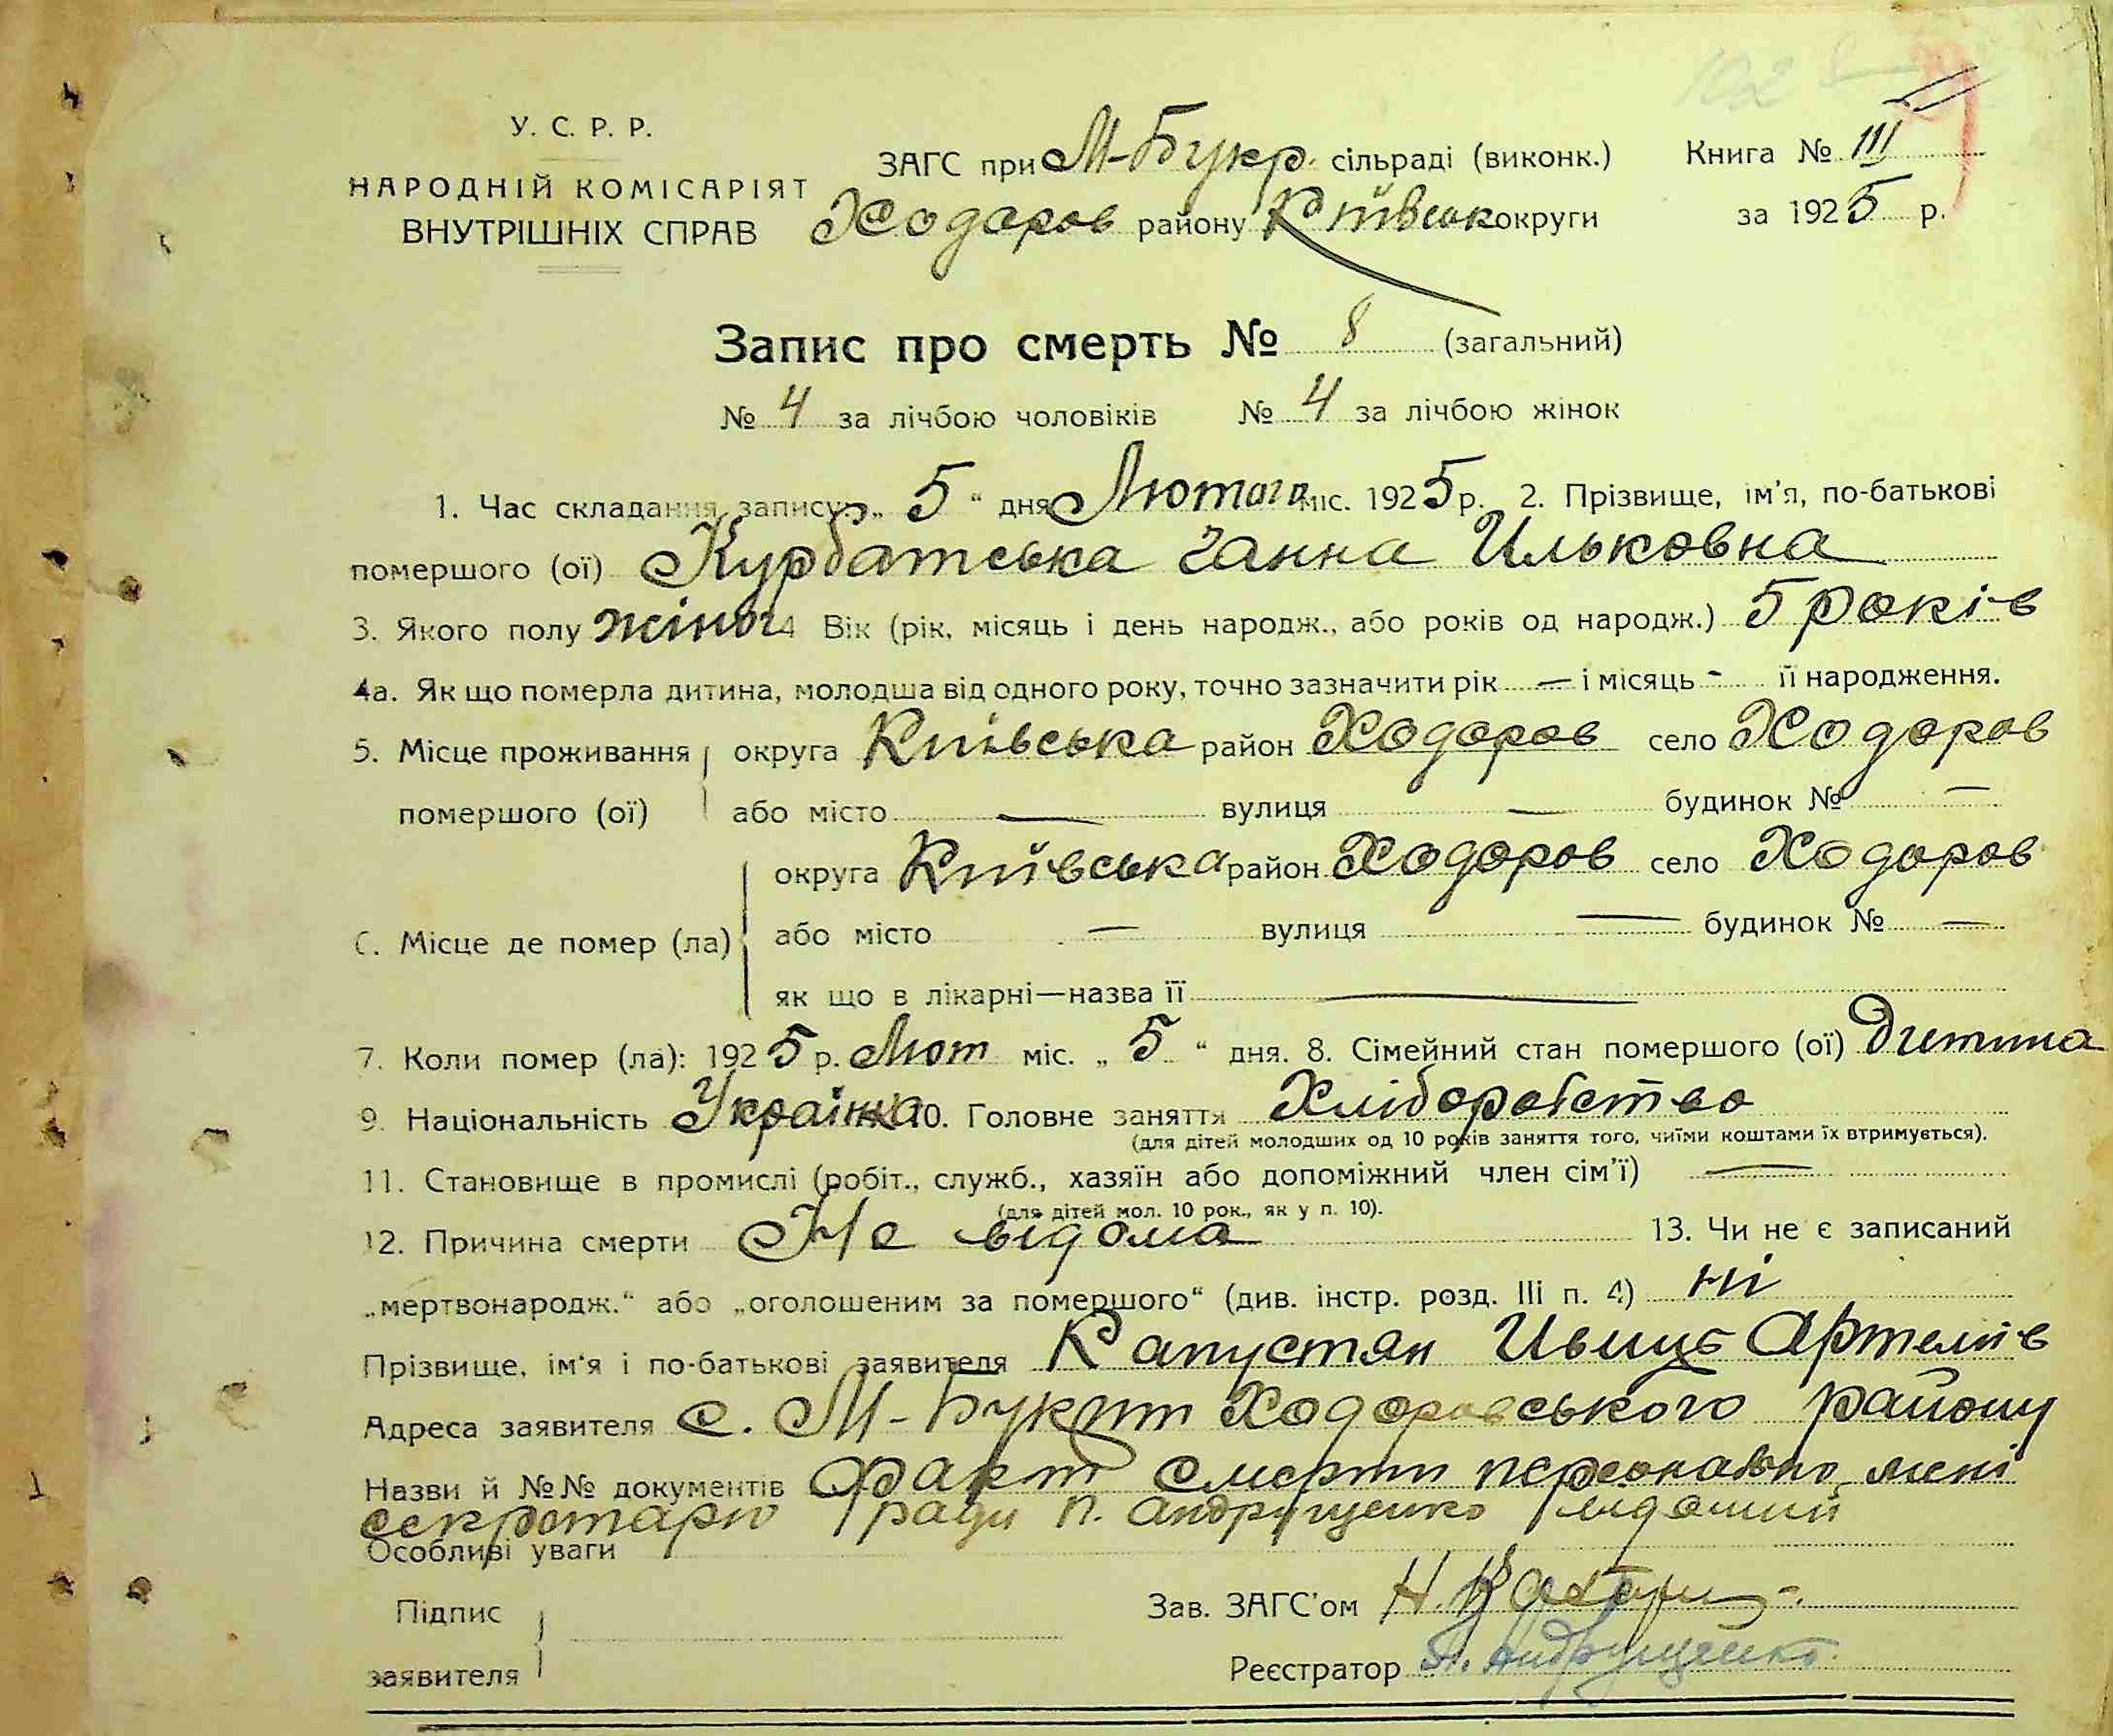 У. С. Р. Р.
НАРОДНІЙ КОМІСАРІЯТ
ВНУТРІШНІХ СПРАВ
ЗАГС при М-Букр. сільраді (виконк.)
Ходоров району Київськ округи
Книга № III
за 1925 р.
Запис про смерть № 8 (загальний)
№ 4 за лічбою чоловіків № 4 за лічбою жінок
1. Час складання запису: „5“ дня Лютого міс. 1925 р. 2. Прізвище, ім'я, по-батькові
помершого (ої) Курбатська Ганна Ильковна
3. Якого полу жіноч 4 Вік (рік, місяць і день народж., або років од народж.) 5 років
4а. Як що померла дитина, молодша від одного року, точно зазначити рік — і місяць - її народження.
5. Місце проживання округа Київська район Ходоров село Ходоров
помершого (ої) або місто — вулиця — будинок № —
округа Київська район Ходоров село Ходоров
6. Місце де помер (ла) або місто — вулиця — будинок № —
як що в лікарні—назва її —
7. Коли помер (ла): 1925 р. Лют міс. „5“ дня. 8. Сімейний стан помершого (ої) Дитина
9. Національність Українка 10. Головне заняття Хліборобство
(для дітей молодших од 10 років заняття того, чиїми коштами їх втримується).
11. Становище в промислі (робіт., служб., хазяїн або допоміжний член сім'ї) —
(для дітей мол. 10 рок., як у п. 10).
12. Причина смерти Не відома 13. Чи не є записаний
„мертвонародж.“ або „оголошеним за помершого“ (див. інстр. розд. III п. 4) ні
Прізвище, ім'я і по-батькові заявителя Капустян Артемів
Адреса заявителя с. М-Букрин Ходоровського району
Назви й №№ документів Факт смерти персонально мені
секретарю ради П. Андрущенко відомий
Особливі уваги
Підпис
заявителя
Зав. ЗАГС'ом Н.
Реєстратор П. Андрущенко